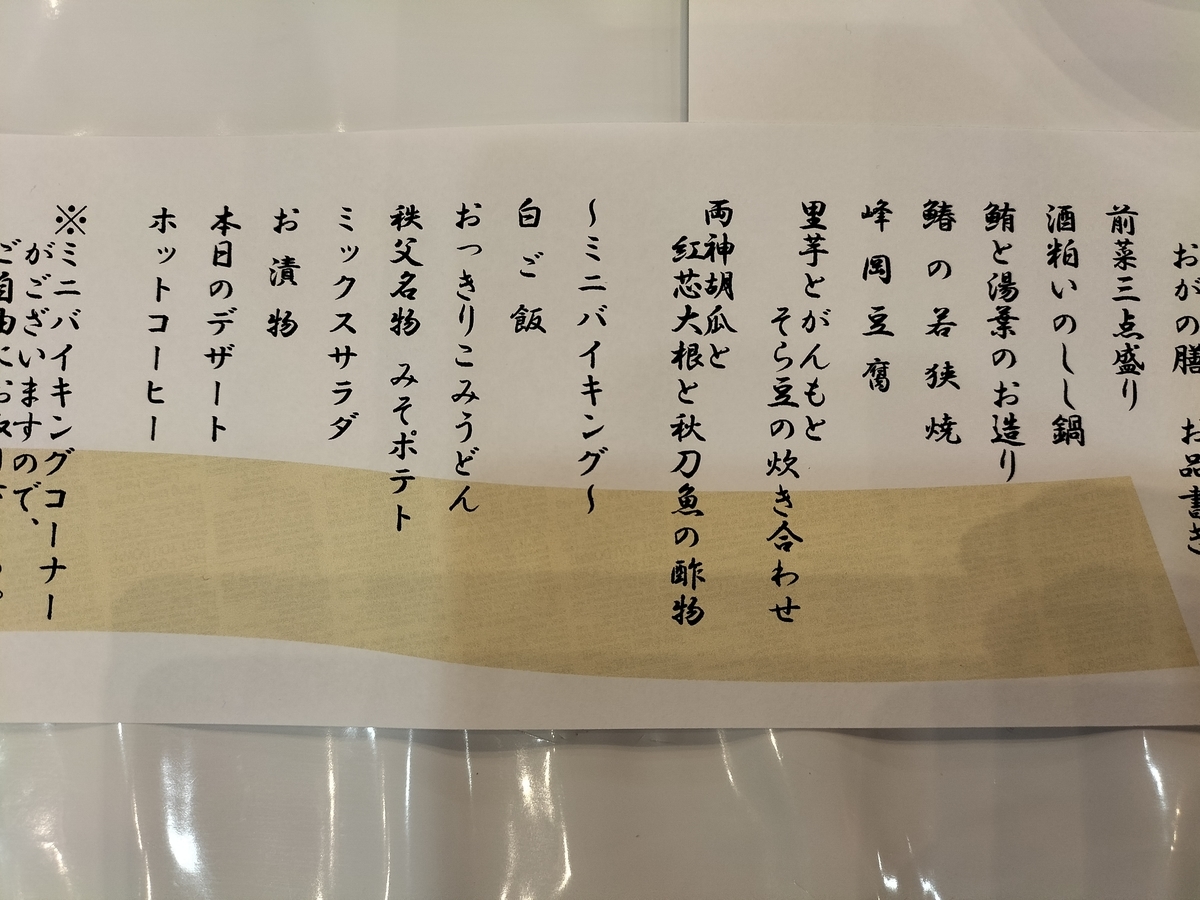 おがの膳 お品書き
前菜三点盛り
酒粕いのしし鍋
鮪と湯葉のお造り
鰆の若狭焼
峰岡豆腐
里芋とがんもと
そら豆の炊き合わせ
両神胡瓜と
紅芯大根と秋刀魚の酢物
〜ミニバイキング〜
白ご飯
おっきりこみうどん
秩父名物 みそポテト
ミックスサラダ
お漬物
本日のデザート
ホットコーヒー
※ミニバイキングコーナー
がございますので、